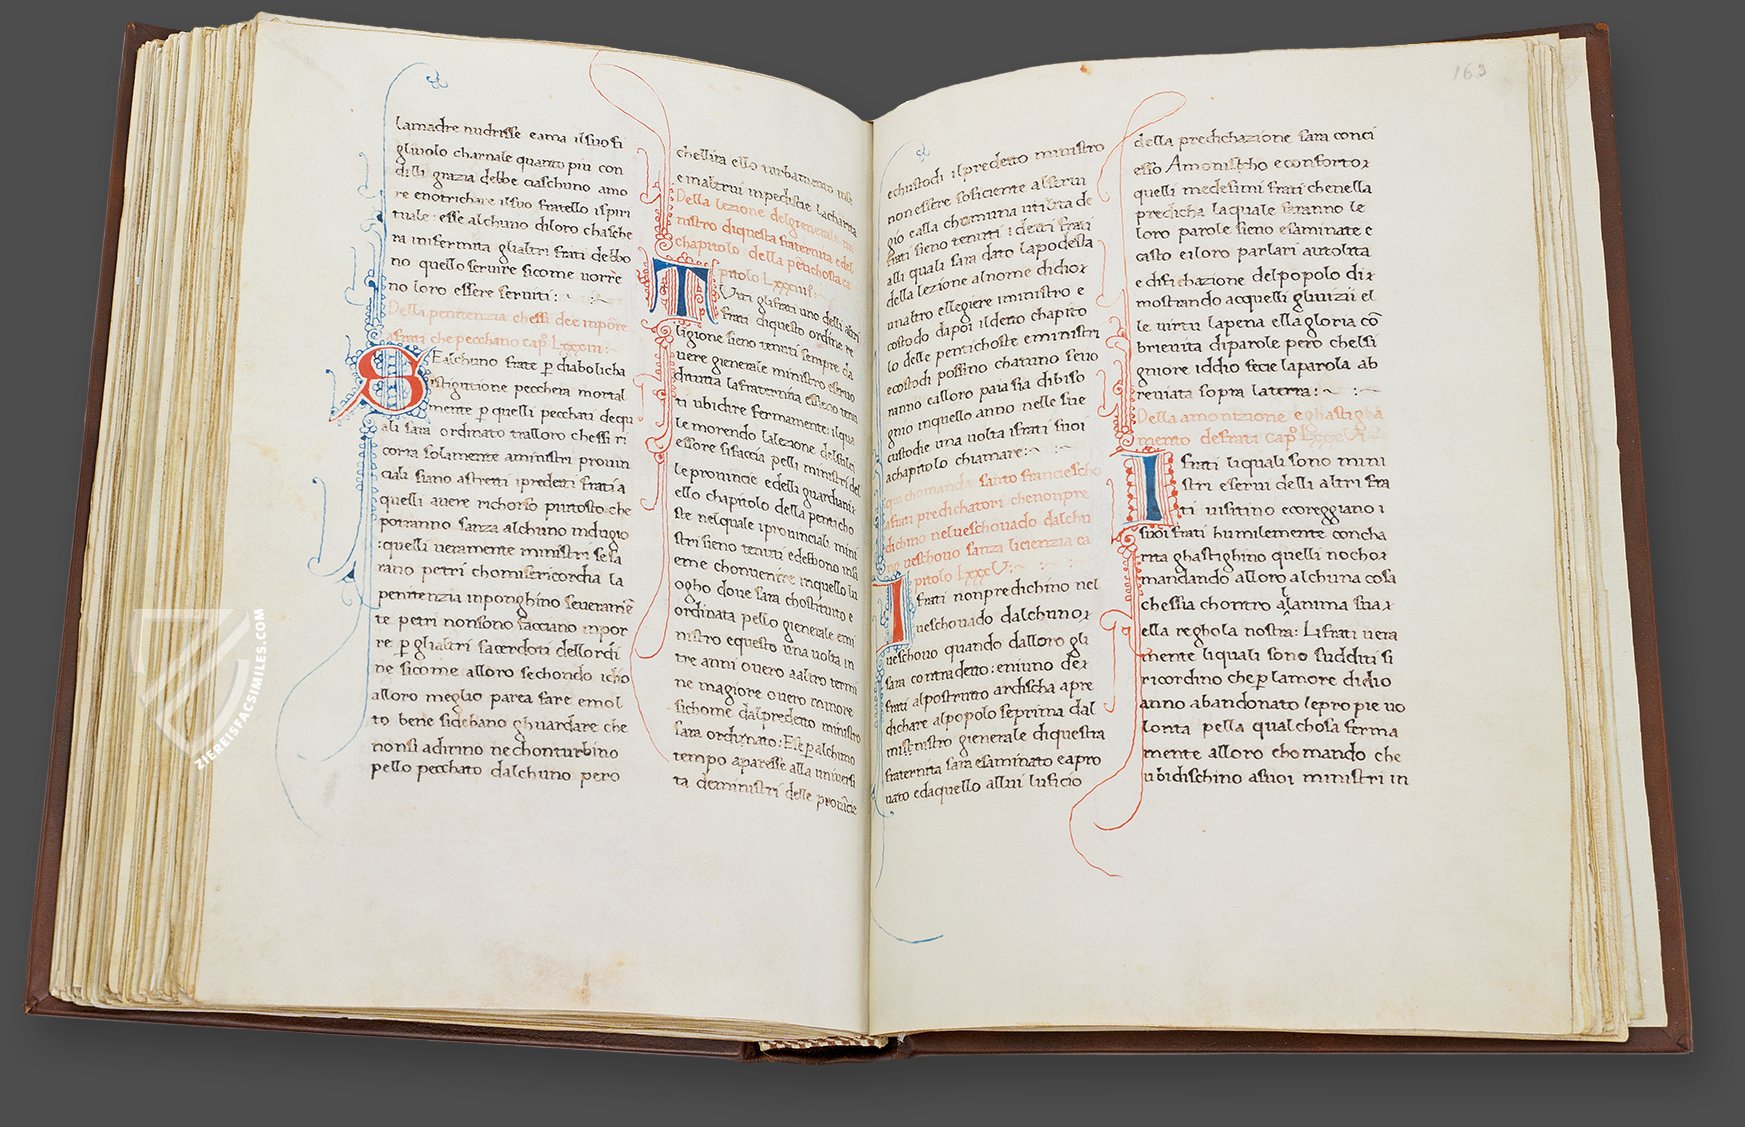 lamadre nudrisse eama ilsuo fi
gliuolo charnale quanto piu con
dilli grazia debbe ciaschuno amo
re enotrichare ilsuo fratello ispiri
tuale: esse alchuno diloro chasche
ra infermita glialtri frati debbo
no quello seruire sicome uorre
no loro essere seruiti:
Della penitenzia chessi dee inpõre
afrati che pecchano cap̃ Lxxxiii:
SEalchuno frate p̱ diabolicha
istighatione pecchera mortal
mente p̱ quelli pecchati dequ
ali sara ordinato tralloro chessi ri
corra solamente aministri prouin
ciali siano astretti ipredetti frati a
quelli auere richorso piutosto che
potranno sanza alchuno indugio
:quelli ueramente ministri sesa
rano petri chomisericordia la
penitenzia inponghino seueramẽ
te petri nonsono facciano inpor
re p̱ glialtri sacerdoti dellordi
ne sicome alloro sechondo idio
alloro meglio parra fare emol
to bene sidebano ghuardare che
nonsi adirino ne chonturbino
pello pecchato dalchuno pero
chellira ello turbamento
enaltrui inpedischie lacharita
Della lezione delgienerale mi
nistro diquesta fraternita edel
chapitolo della pentichosta ca
pitolo Lxxxiiii:
TUtti glifrati uno delli altri
frati diquesto ordine re
ligione sieno tenuti sempre da
uere gienerale ministro eseruo
ditutta lafraternita esseno tenu
ti ubidire fermamente: ilqua
le morendo lalezione
essore sifaccia pelli ministri del
le prouincie edella guardiani
ello chapitolo della penticho
ste nelquale iprouinciali mini
stri sieno tenuti edebbono insi
eme chonuenire inquello lu
ogho doue sara chostituito e
ordinata pello gienerale emi
nistro equesto una uolta in
tre anni ouero aaltro termi
ne magiore ouero minore
sichome dalpredetto ministro
sara ordinato: Ese p̱ alchuno
tempo aparesse alla uniuersi
ta deministri delle prouĩcie
163
echustodi ilpredetto ministro
non essere soficiente alserui
gio ealla chomuna utilita de
frati sieno tenuti idetti frati
alli quali sara dato lapodesta
della lezione alnome didior
unaltro ellegiere iministro e
costodo dapoi ildetto chapito
lo delle pentichoste eministri
ecostodi possino chatuno seuo
ranno ealloro paia sia dibiso
gnio inquello anno nelle sue
custodie una uolta ifrati suoi
achapitolo chiamare:
qui chomanda santo franciescho
afrati predichatori chenonpre
dichino neluescouado dalchu
no ueschouo sanza licienzia ca
pitolo Lxxxv:
Ifrati nonpredichino nel
ueschouado dalchunor
ueschouo quando dalloro gli
sara contradetto: eniuno der
frati alpostutto ardischa apre
dichare alpopolo seprima dal
ministro gienerale diquesta
fraternita sara esaminato eapro
uato edaquello allui luficio
della predichazione sara conci
esso Amonischo econfortor
quelli medesimi frati chenella
predicha laquale faranno le
loro parole sieno esaminate e
casto eiloro parlari autolita
edifichazione delpopolo dir
mostrando acquelli gliuizii el
le uirtu lapena ella gloria cõ
brieuita diparole pero chelsi
gniore iddio fecie laparola ab
reuiata sopra laterra:
Della amonizione eghastigha
mento defrati cap̊ Lxxxvi
Ifrati liquali sono mini
stri eserui delli altri fra
ti uisitino ecoreggiano i
suoi frati humilemente concha
rita ghastighino quelli nochor
mandando alloro alchuna cosa
chessia chontro alanima suar
ella reghola nostra: Lifrati uera
mente liquali sono sudditi si
ricordino che p̱ lamore didio
anno abandonato lepropie uo
lonta pella qual chosa ferma
mente alloro chomando che
ubidischino asuoi ministri in
ZIEREISFACSIMILES.COM